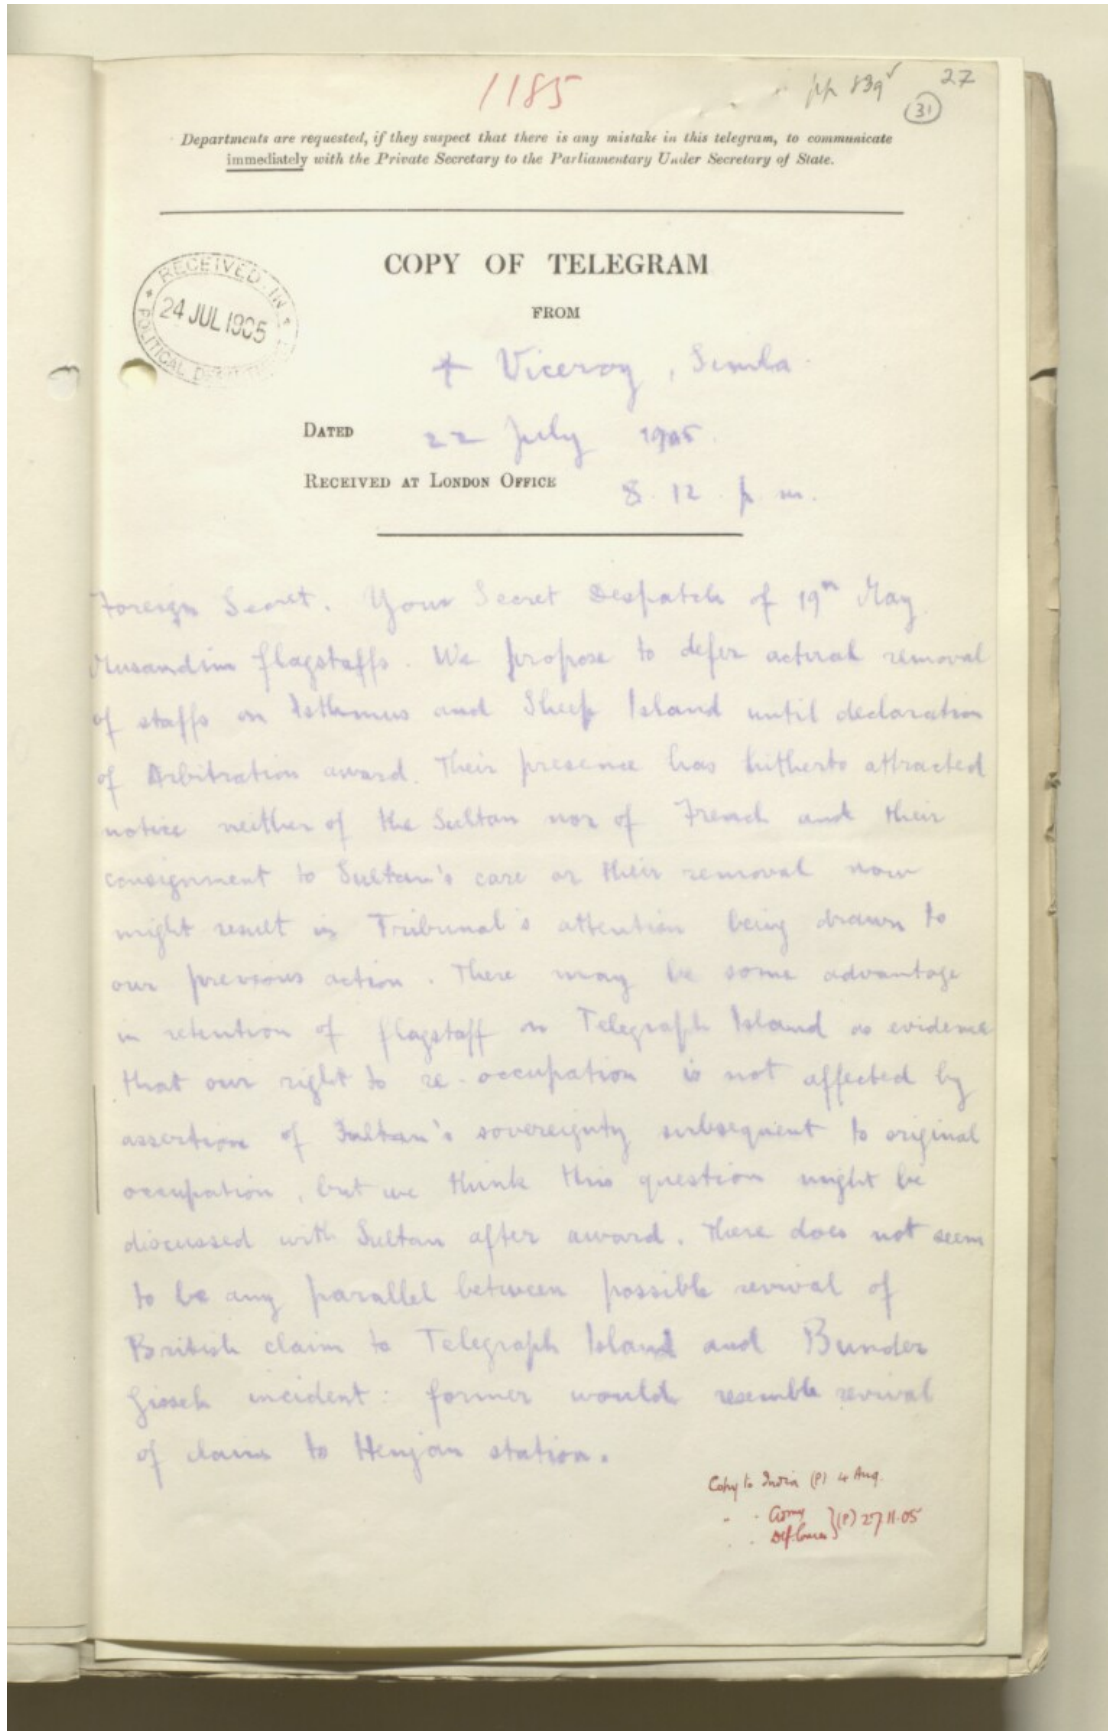 1185
pp 839
27
31
Departments are requested, if they suspect that there is any mistake in this telegram, to communicate
immediately with the Private Secretary to the Parliamentary Under Secretary of State.
COPY OF TELEGRAM
FROM
RECEIVED IN
24 JUL 1905
POLITICAL
Viceroy, Simla.
DATED 22 July 1905.
RECEIVED AT LONDON OFFICE 8.12. p.m.
Foreign Secret. Your Secret Despatch of 19th May.
Musandim flagstaffs. We propose to defer actual removal
of staffs on Isthmus and Sheep Island until declaration
of Arbitration award. Their presence has hitherto attracted
notice neither of the Sultan nor of French and their
consignment to Sultan's care or their removal now
might result in Tribunal's attention being drawn to
our previous action. There may be some advantage
in retention of flagstaff on Telegraph Island as evidence
that our right to re-occupation is not affected by
assertion of Sultan's sovereignty subsequent to original
occupation, but we think this question might be
discussed with Sultan after award. There does not seem
to be any parallel between possible revival of
British claim to Telegraph Island and Bunder
Gisseh incident: former would resemble revival
of claims to Henjam station.
Copy to India (P) 4 Aug.
" " Army } (P) 27.11.05
" "